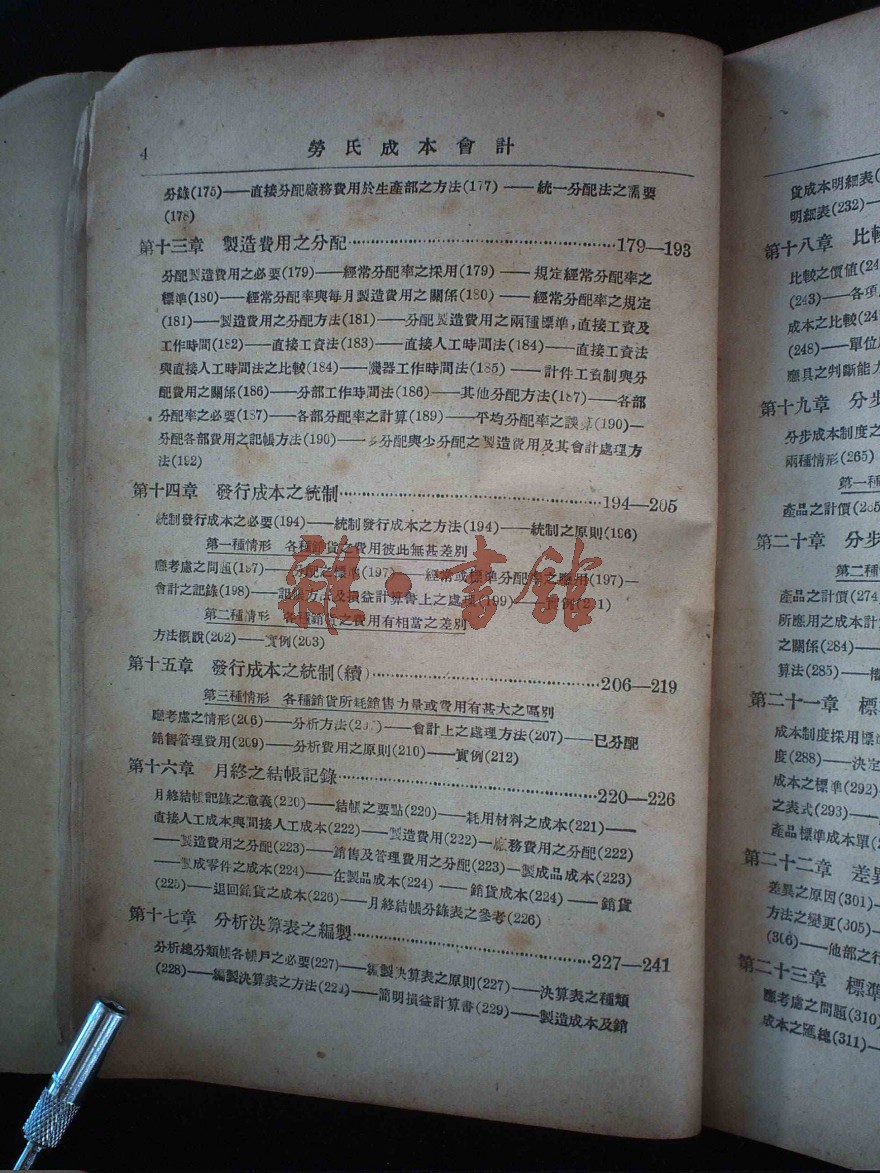 4
勞氏成本會計
分錄(175)——直接分配廠務費用於生產部之方法(177)——統一分配法之需要
(178)
第十三章 製造費用之分配……………179—193
分配製造費用之必要(179)——經常分配率之採用(179)——規定經常分配率之
標準(180)——經常分配率與每月製造費用之關係(180)——經常分配率之規定
(181)——製造費用之分配方法(181)——分配製造費用之兩種標準,直接工資及
工作時間(182)——直接工資法(183)——直接人工時間法(184)——直接工資法
與直接人工時間法之比較(184)——機器工作時間法(185)——計件工資制與分
配費用之關係(186)——分部工作時間法(186)——其他分配方法(187)——各部
分配率之必要(187)——各部分配率之計算(189)——平均分配率之誤算(190)—
分配各部費用之記帳方法(190)——多分配與少分配之製造費用及其會計處理方
法(192)
第十四章 發行成本之統制……………194—205
統制發行成本之必要(194)——統制發行成本之方法(194)——統制之原則(196)
第一種情形 各種銷貨之費用彼此無甚差別
應考慮之問題(197)——分配之標準(197)——經常或標準分配率之應用(197)—
會計之記錄(198)——記帳方法及損益計算書上之處理(199)——實例(201)
第二種情形 各種銷貨之費用有相當之差別
方法概說(202)——實例(203)
第十五章 發行成本之統制(續)……………206—219
第三種情形 各種銷貨所耗銷售力量或費用有甚大之區別
應考慮之情形(206)——分析方法——會計上之處理方法(207)——已分配
銷售管理費用(209)——分析費用之原則(210)——實例(212)
第十六章 月終之結帳記錄……………220—226
月終結帳記錄之意義(220)——結帳之要點(220)——耗用材料之成本(221)——
直接人工成本與間接人工成本(222)——製造費用(222)—廠務費用之分配(222)
——製造費用之分配(223)——銷售及管理費用之分配(223)—製成品成本(223)
——製成零件之成本(224)——在製品成本(224)——銷貨成本(224)——銷貨
(225)——退回銷貨之成本(226)——月終結帳分錄表之參考(226)
第十七章 分析決算表之編製……………227—241
分析總分類帳各帳戶之必要(227)——編製決算表之原則(227)——決算表之種類
(228)——編製決算表之方法(229)——簡明損益計算書(229)——製造成本及銷
貨成本明細表
明細表(232)—
第十八章 比較
比較之價值
(243)——各項
成本之比較
(248)——單位
應具之判斷能力
第十九章 分步
分步成本制度之
兩種情形(265)
第一種
產品之計價
第二十章 分步
第二種
產品之計價(274
所應用之成本計
之關係(284)——
算法(285)——
第二十一章 標準
成本制度採用標準
度(288)——決定
成本之標準(292)—
之表式(293)——
產品標準成本單
第二十二章 差異
差異之原因(301)—
方法之變更(305)—
(306)——他部之
第二十三章 標準
應考慮之問題(310)
成本之匯總(311)—
雜·書館